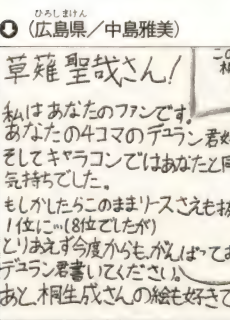 ひろしまけん
(広島県／中島雅美)
この
草薙 聖哉さん!
私は あなたのファンです。
あなたの4コマのデュラン君
そしてキャラコンではあなたと同
気持ちでした。
もしかしたらこのままリースさえも抜
1位に…(8位でしたが)
とりあえず今度からも、がんばってお
デュラン君書いてください。
あと、桐生成さんの絵も好きで